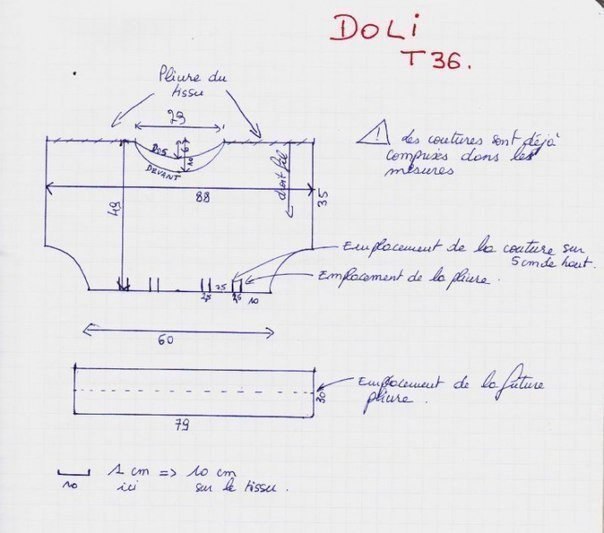 DOLi
T 36.
Pliure du
tissu
29
DOS
6
10
DEVANT
droit fil
⚠ Les coutures sont déjà
comprises dans les
mesures
49
88
35
Emplacement de la couture sur
5 cm de haut.
Emplacement de la pliure.
10
60
Emplacement de la future
pliure.
30
79
1 cm => 10 cm
10 ici sur le tissu.